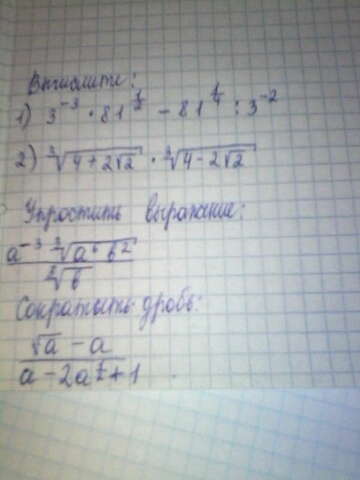 Вычислите:
1) 3^{-3} · 81^{\frac{1}{2}} - 81^{\frac{1}{4}} : 3^{-2}
2) \sqrt[3]{4+2\sqrt{2}} · \sqrt[3]{4-2\sqrt{2}}
Упростить выражение:
\frac{a^{-3} \sqrt[3]{a^6 b^2}}{\sqrt[3]{b}}
Сократить дробь:
\frac{\sqrt{a} - a}{a - 2a^{\frac{1}{2}} + 1}